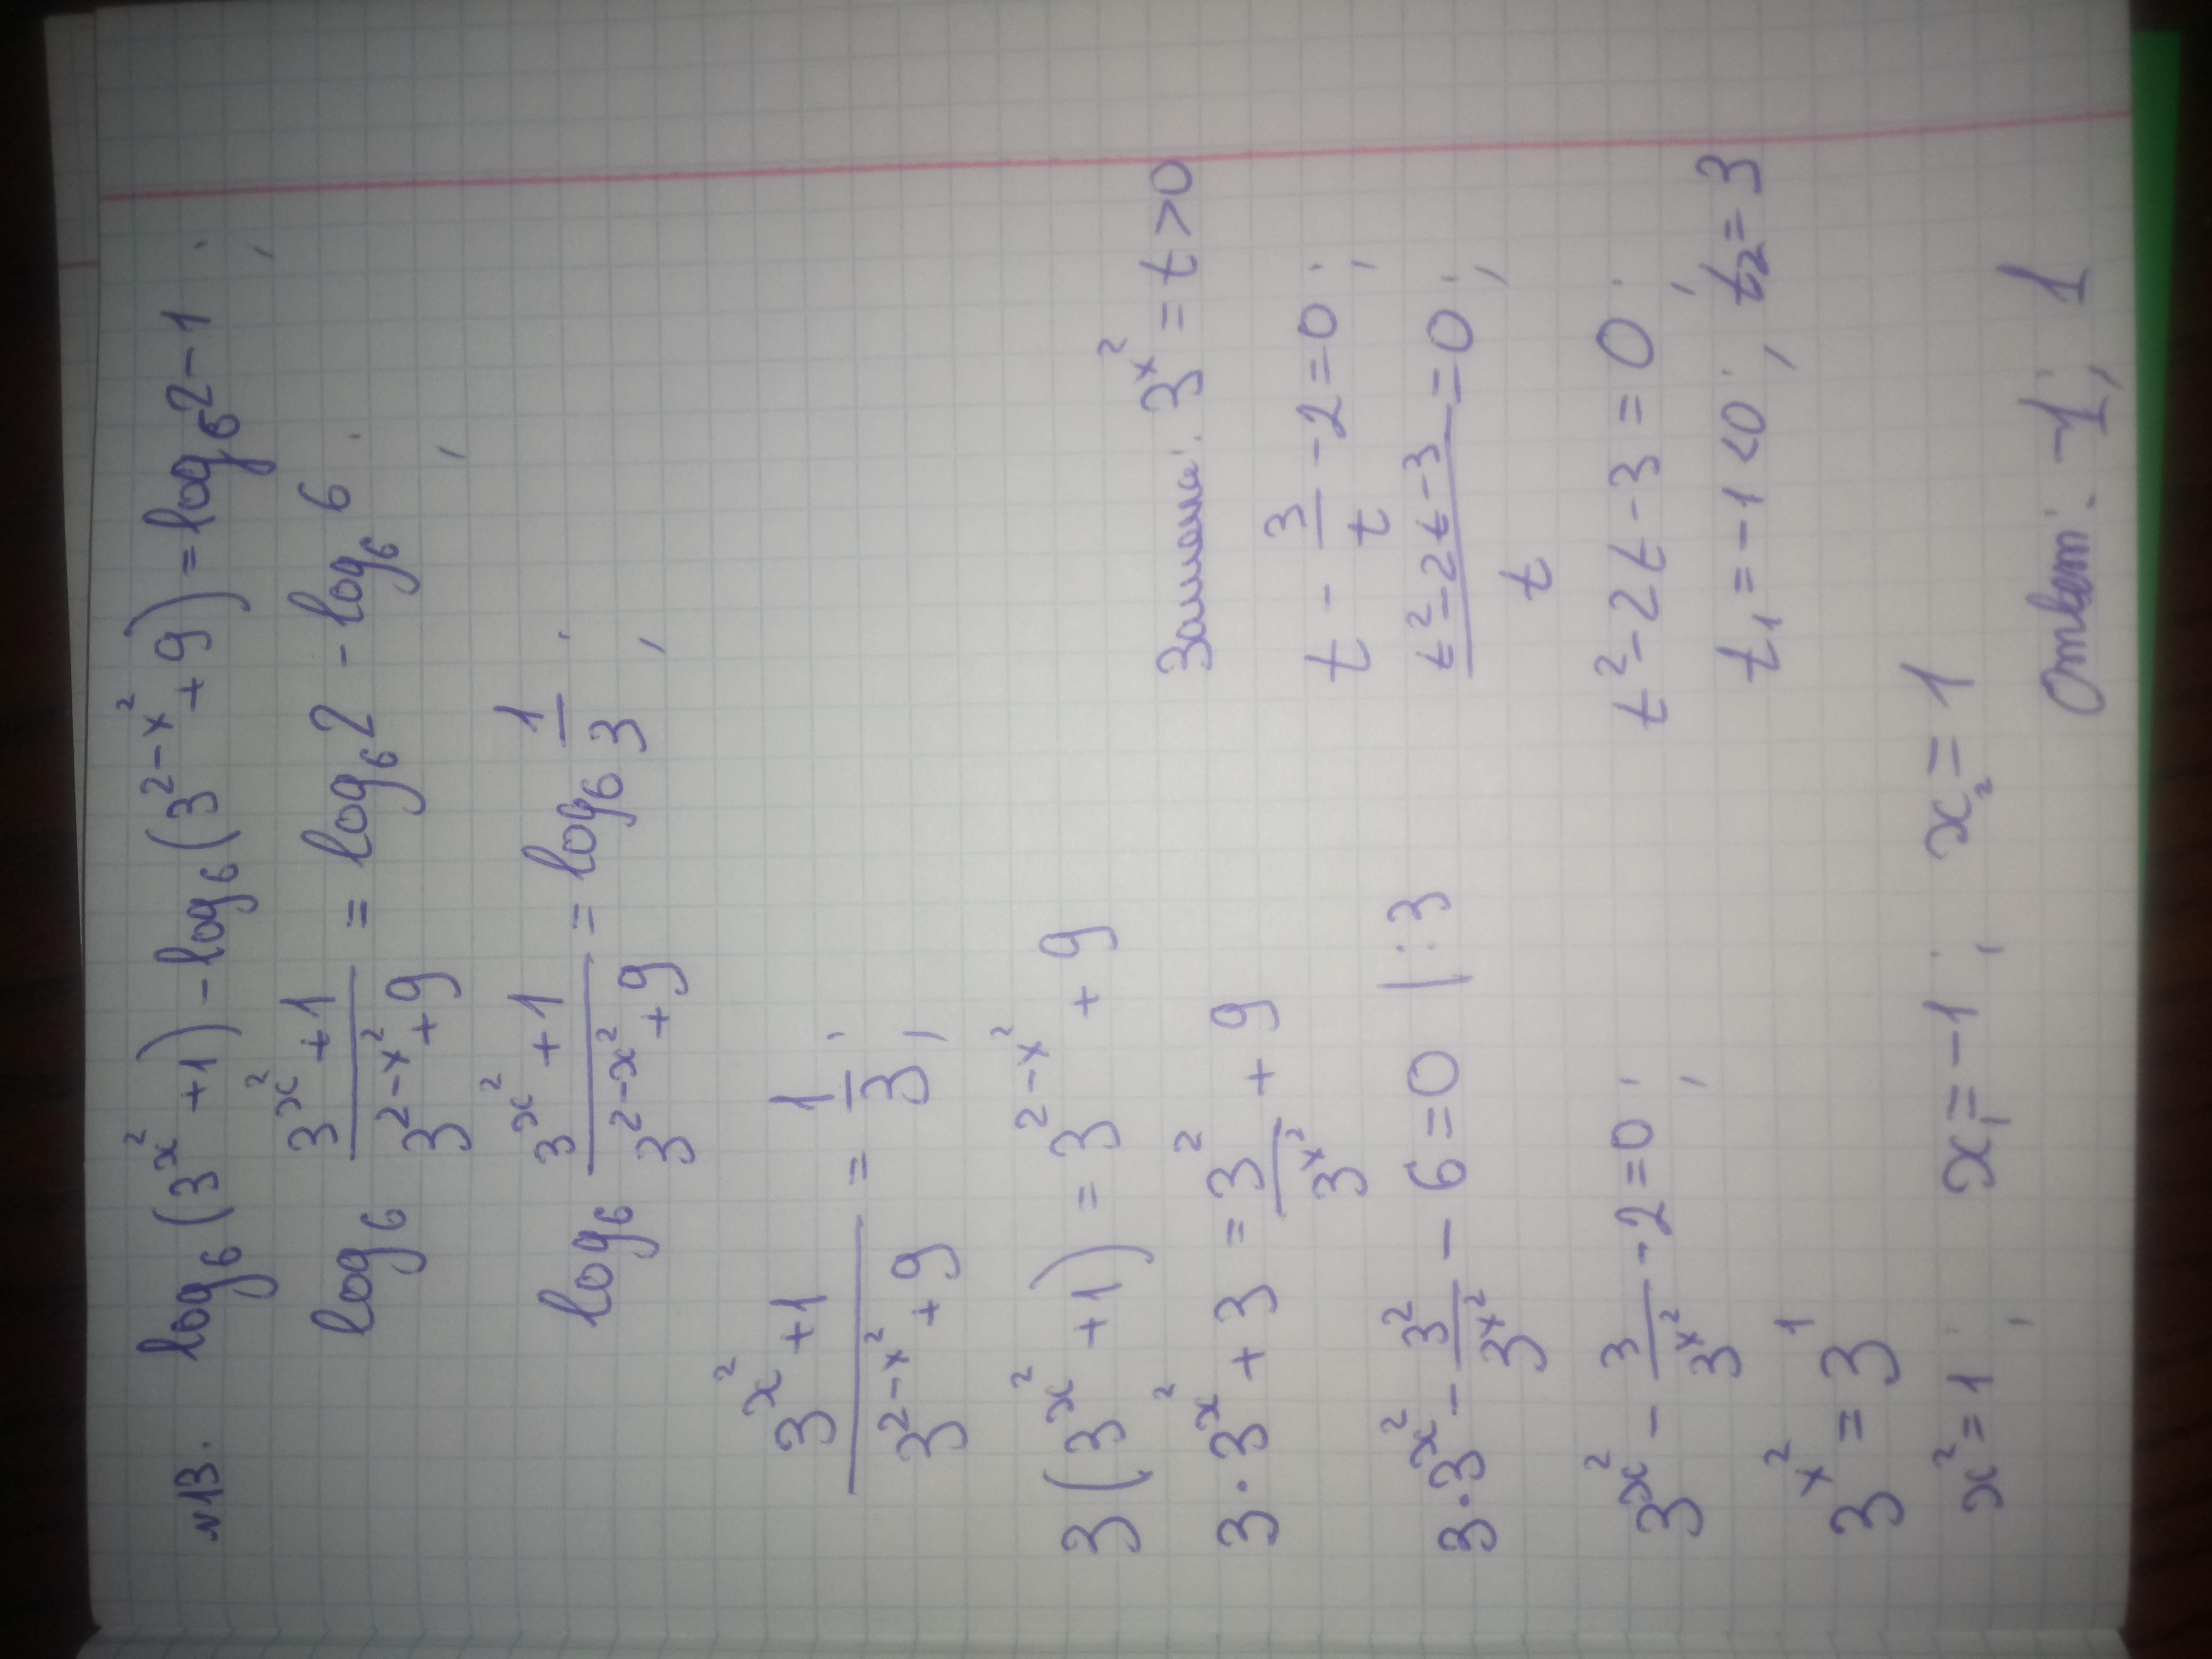 №13. log₆(3^(x²)+1) - log₆(3^(2-x²)+9) = log₆2 - 1;
log₆ (3^(x²)+1)/(3^(2-x²)+9) = log₆2 - log₆6;
log₆ (3^(x²)+1)/(3^(2-x²)+9) = log₆ 1/3;
(3^(x²)+1)/(3^(2-x²)+9) = 1/3;
3(3^(x²)+1) = 3^(2-x²)+9
3·3^(x²)+3 = 3²/3^(x²) + 9
3·3^(x²) - 3²/3^(x²) - 6 = 0 |:3
3^(x²) - 3/3^(x²) - 2 = 0;
Замена: 3^(x²) = t > 0
t - 3/t - 2 = 0;
(t²-2t-3)/t = 0;
t²-2t-3 = 0;
t₁ = -1 < 0; t₂ = 3
3^(x²) = 3¹
x² = 1; x₁ = -1; x₂ = 1
Ответ: -1; 1